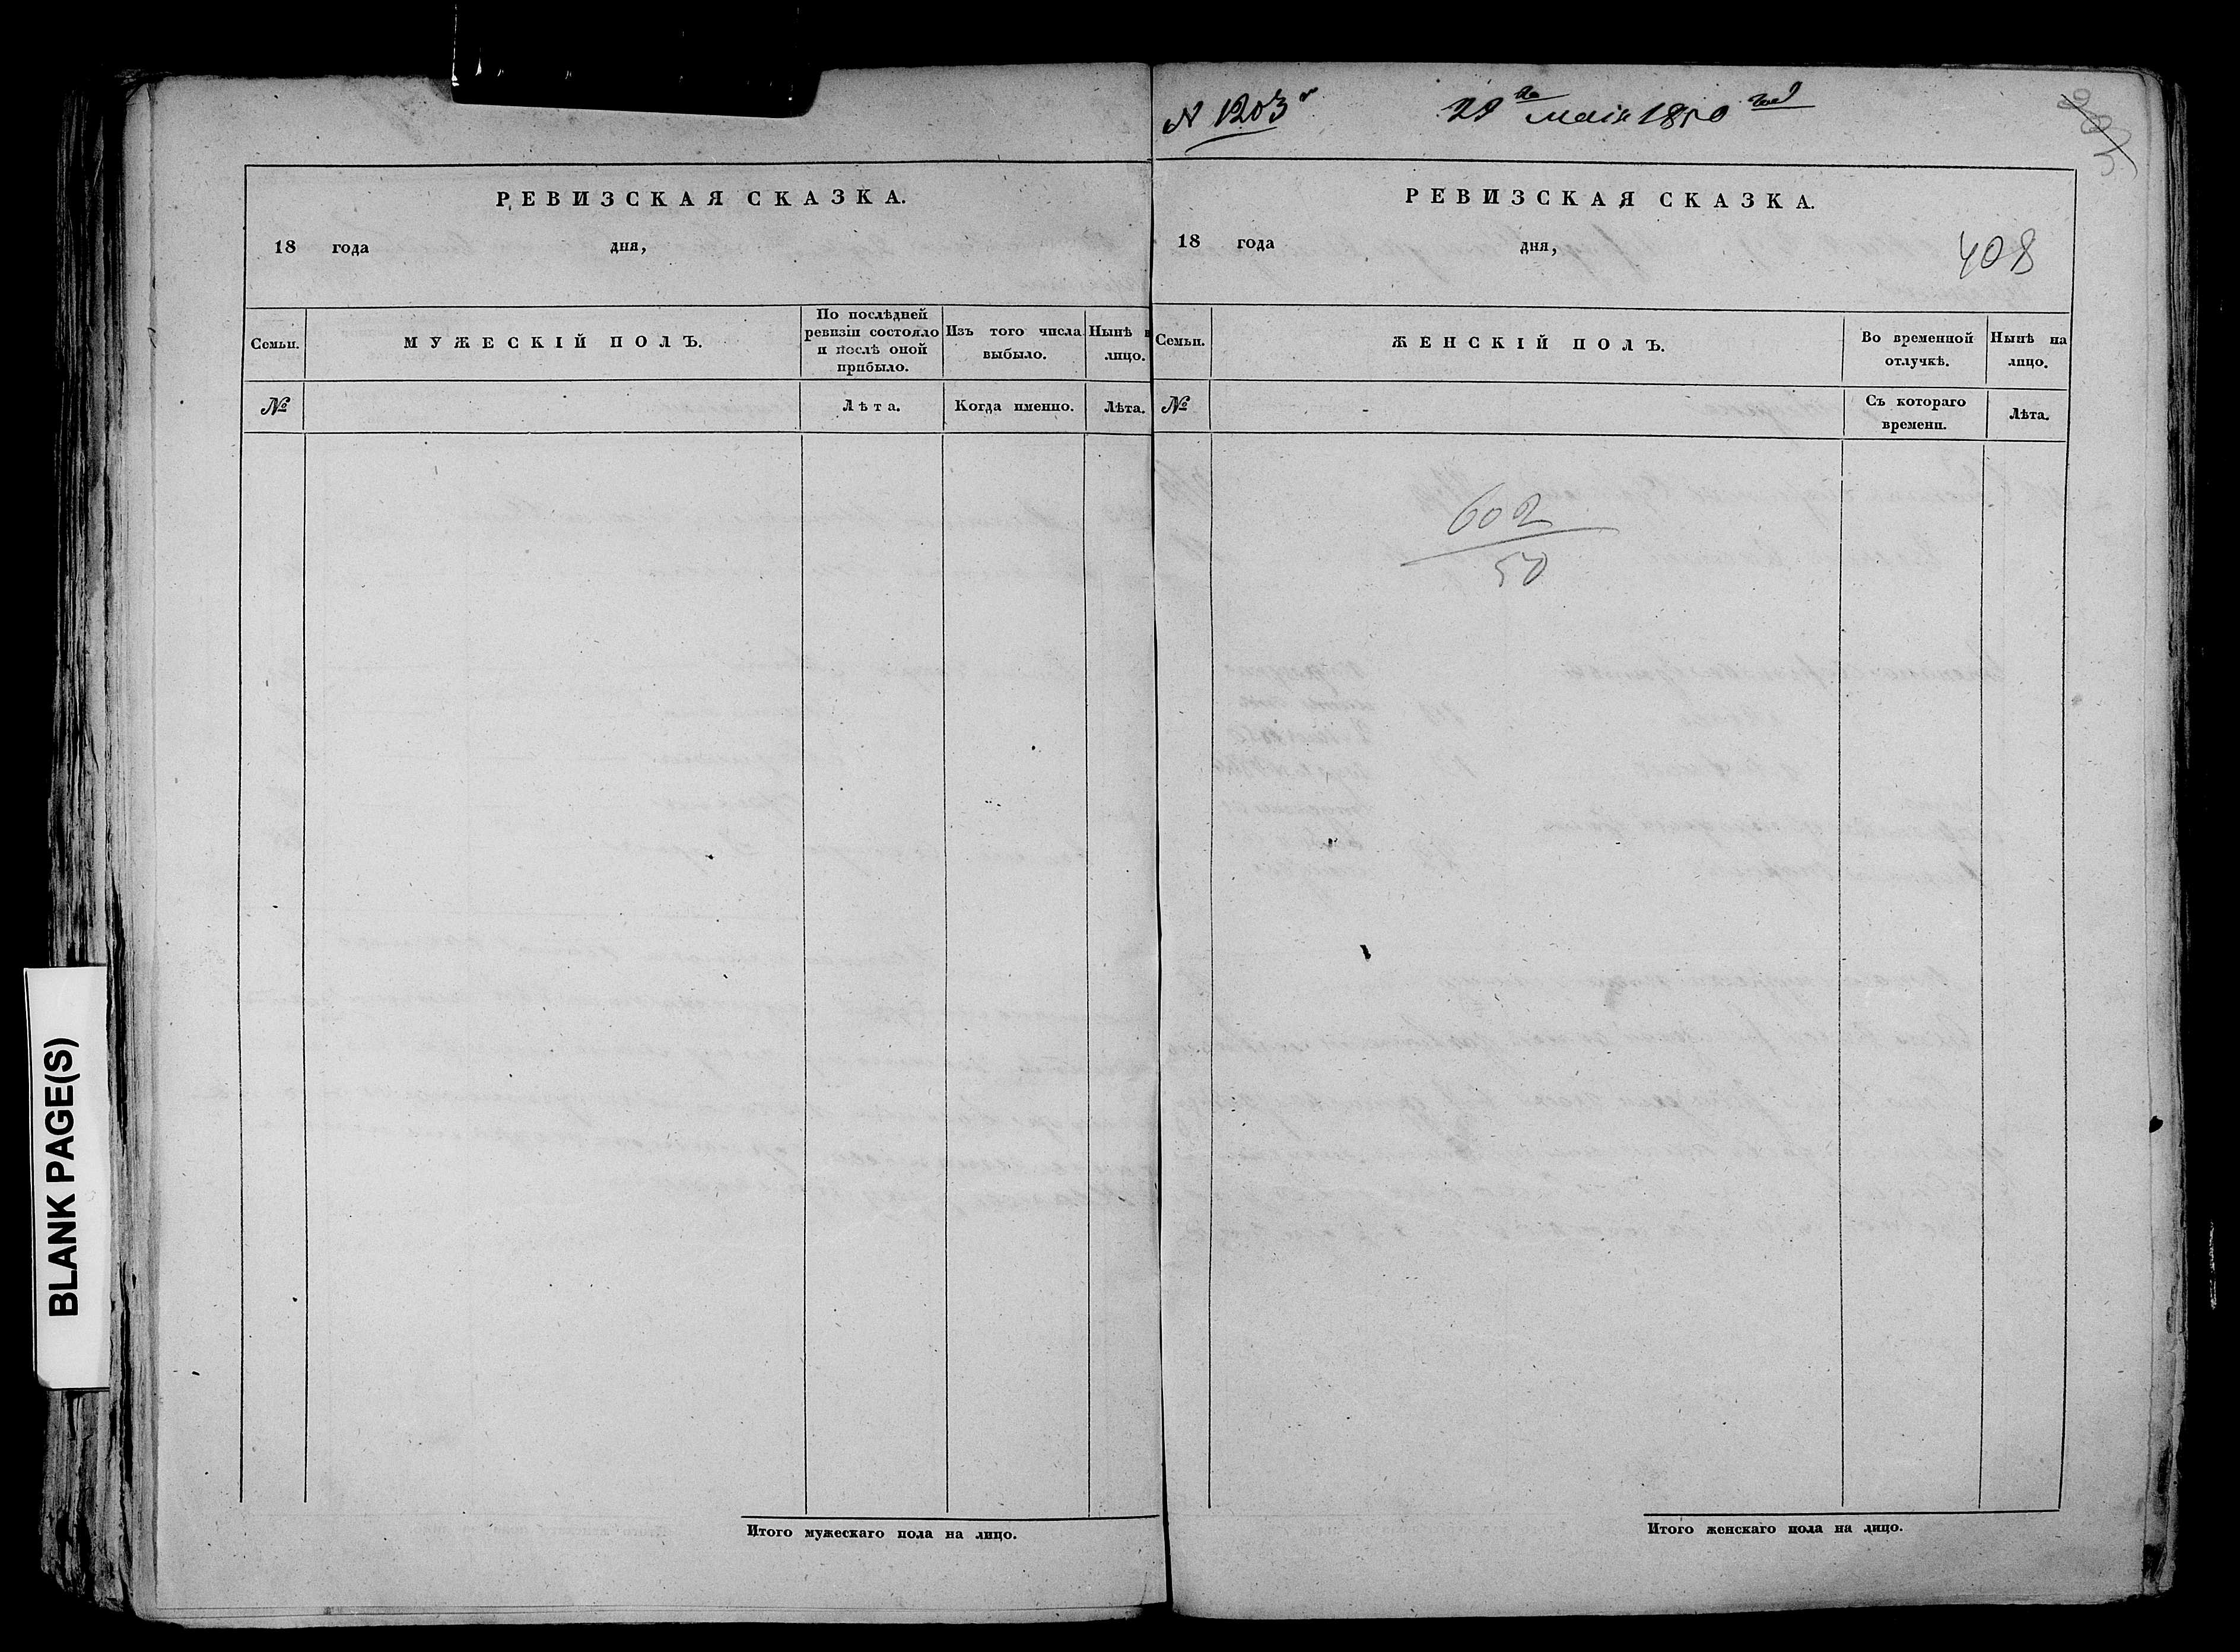 BLANK PAGE(S)
РЕВИЗСКАЯ СКАЗКА.
18 года дня,
Семьи.
МУЖЕСКІЙ ПОЛЪ.
По послѣдней
ревизіи состояло
и послѣ оной
прибыло.
Изъ того числа
выбыло.
Нынѣ н
лицо.
№
Лѣта.
Когда именно.
Лѣта.
Итого мужескаго пола на лицо.
N 1203
29 маія 1850 год
РЕВИЗСКАЯ СКАЗКА.
18 года дня,
408
Семьи.
ЖЕНСКІЙ ПОЛЪ.
Во временной
отлучкѣ.
Нынѣ на
лицо.
№
Съ котораго
времени.
Лѣта.
602
50
Итого женскаго пола на лицо.